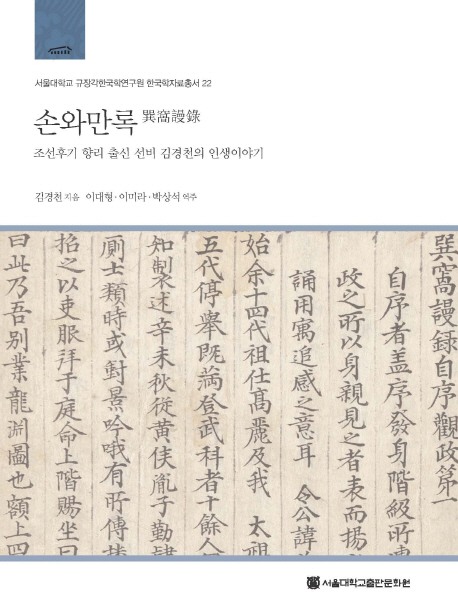 서울대학교 규장각한국학연구원 한국학자료총서 22
손와만록 巽窩謾錄
조선후기 향리 출신 선비 김경천의 인생이야기
김경천 지음 이대형·이미라·박상석 역주
巽窩謾錄自序觀政第一
自序者盖序發身階級所
政之所以身親見之者表而揚
誦用寓追感之意耳 令公諱
始余十四代祖仕高麗及我 太祖
五代停擧旣滿登武科者十餘人
知製述辛未秋從黃侯胤子勤
厠士類時或對景吟哦有所傳
招之以吏服拜于庭命上階賜坐
曰此乃吾別業龍淵圖也額上四
서울대학교출판문화원